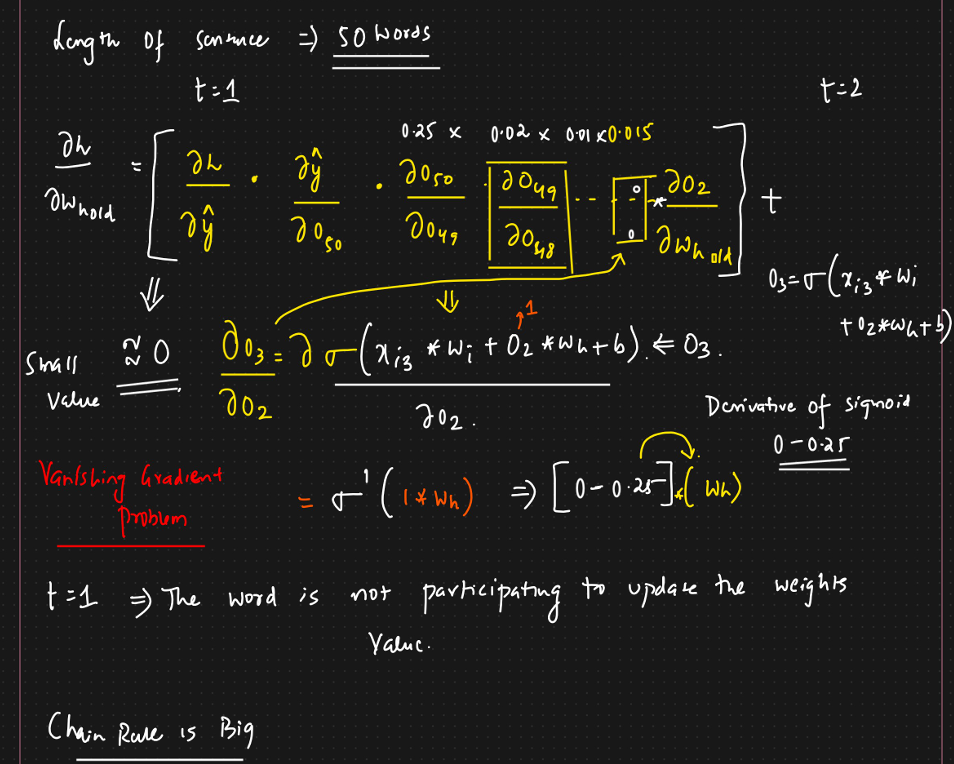 Length of sentence ⇒ 50 words
t=1 t=2
0.25 × 0.02 × 0.01 × 0.015
∂h/∂Whold = [ ∂L/∂ŷ · ∂ŷ/∂O50 · ∂O50/∂O49 · ∂O49/∂O48 -- [0 -- 0] * ∂O2/∂Wh old ] +
O3 = σ(xi3 * Wi
+ O2 * Wh + b)
1
Small Value ≈ 0 ∂O3/∂O2 = ∂ σ(xi3 * Wi + O2 * Wh + b) / ∂O2. ⇐ O3.
Derivative of sigmoid
0 - 0.25
Vanishing Gradient
Problem
= σ'(1 * Wh) ⇒ [0 - 0.25] * (Wh)
t=1 ⇒ The word is not participating to update the weights
Value.
Chain Rule is Big